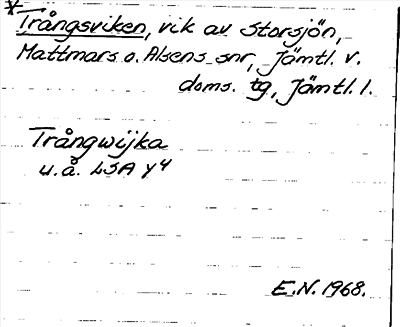 Trångsviken, vik av Storsjön,
Mattmars o. Alsens snr, Jämtl. v.
doms. tg, Jämtl. l.
Trångwijka
u.å. LSA Y4
E.N. 1968.